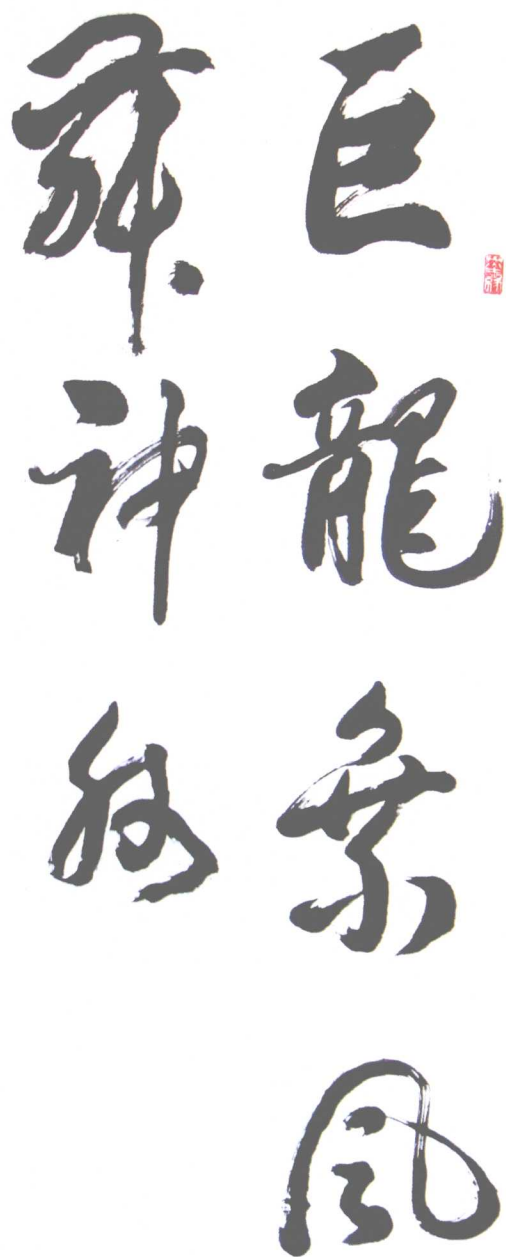 巨龍乘風
舞神州